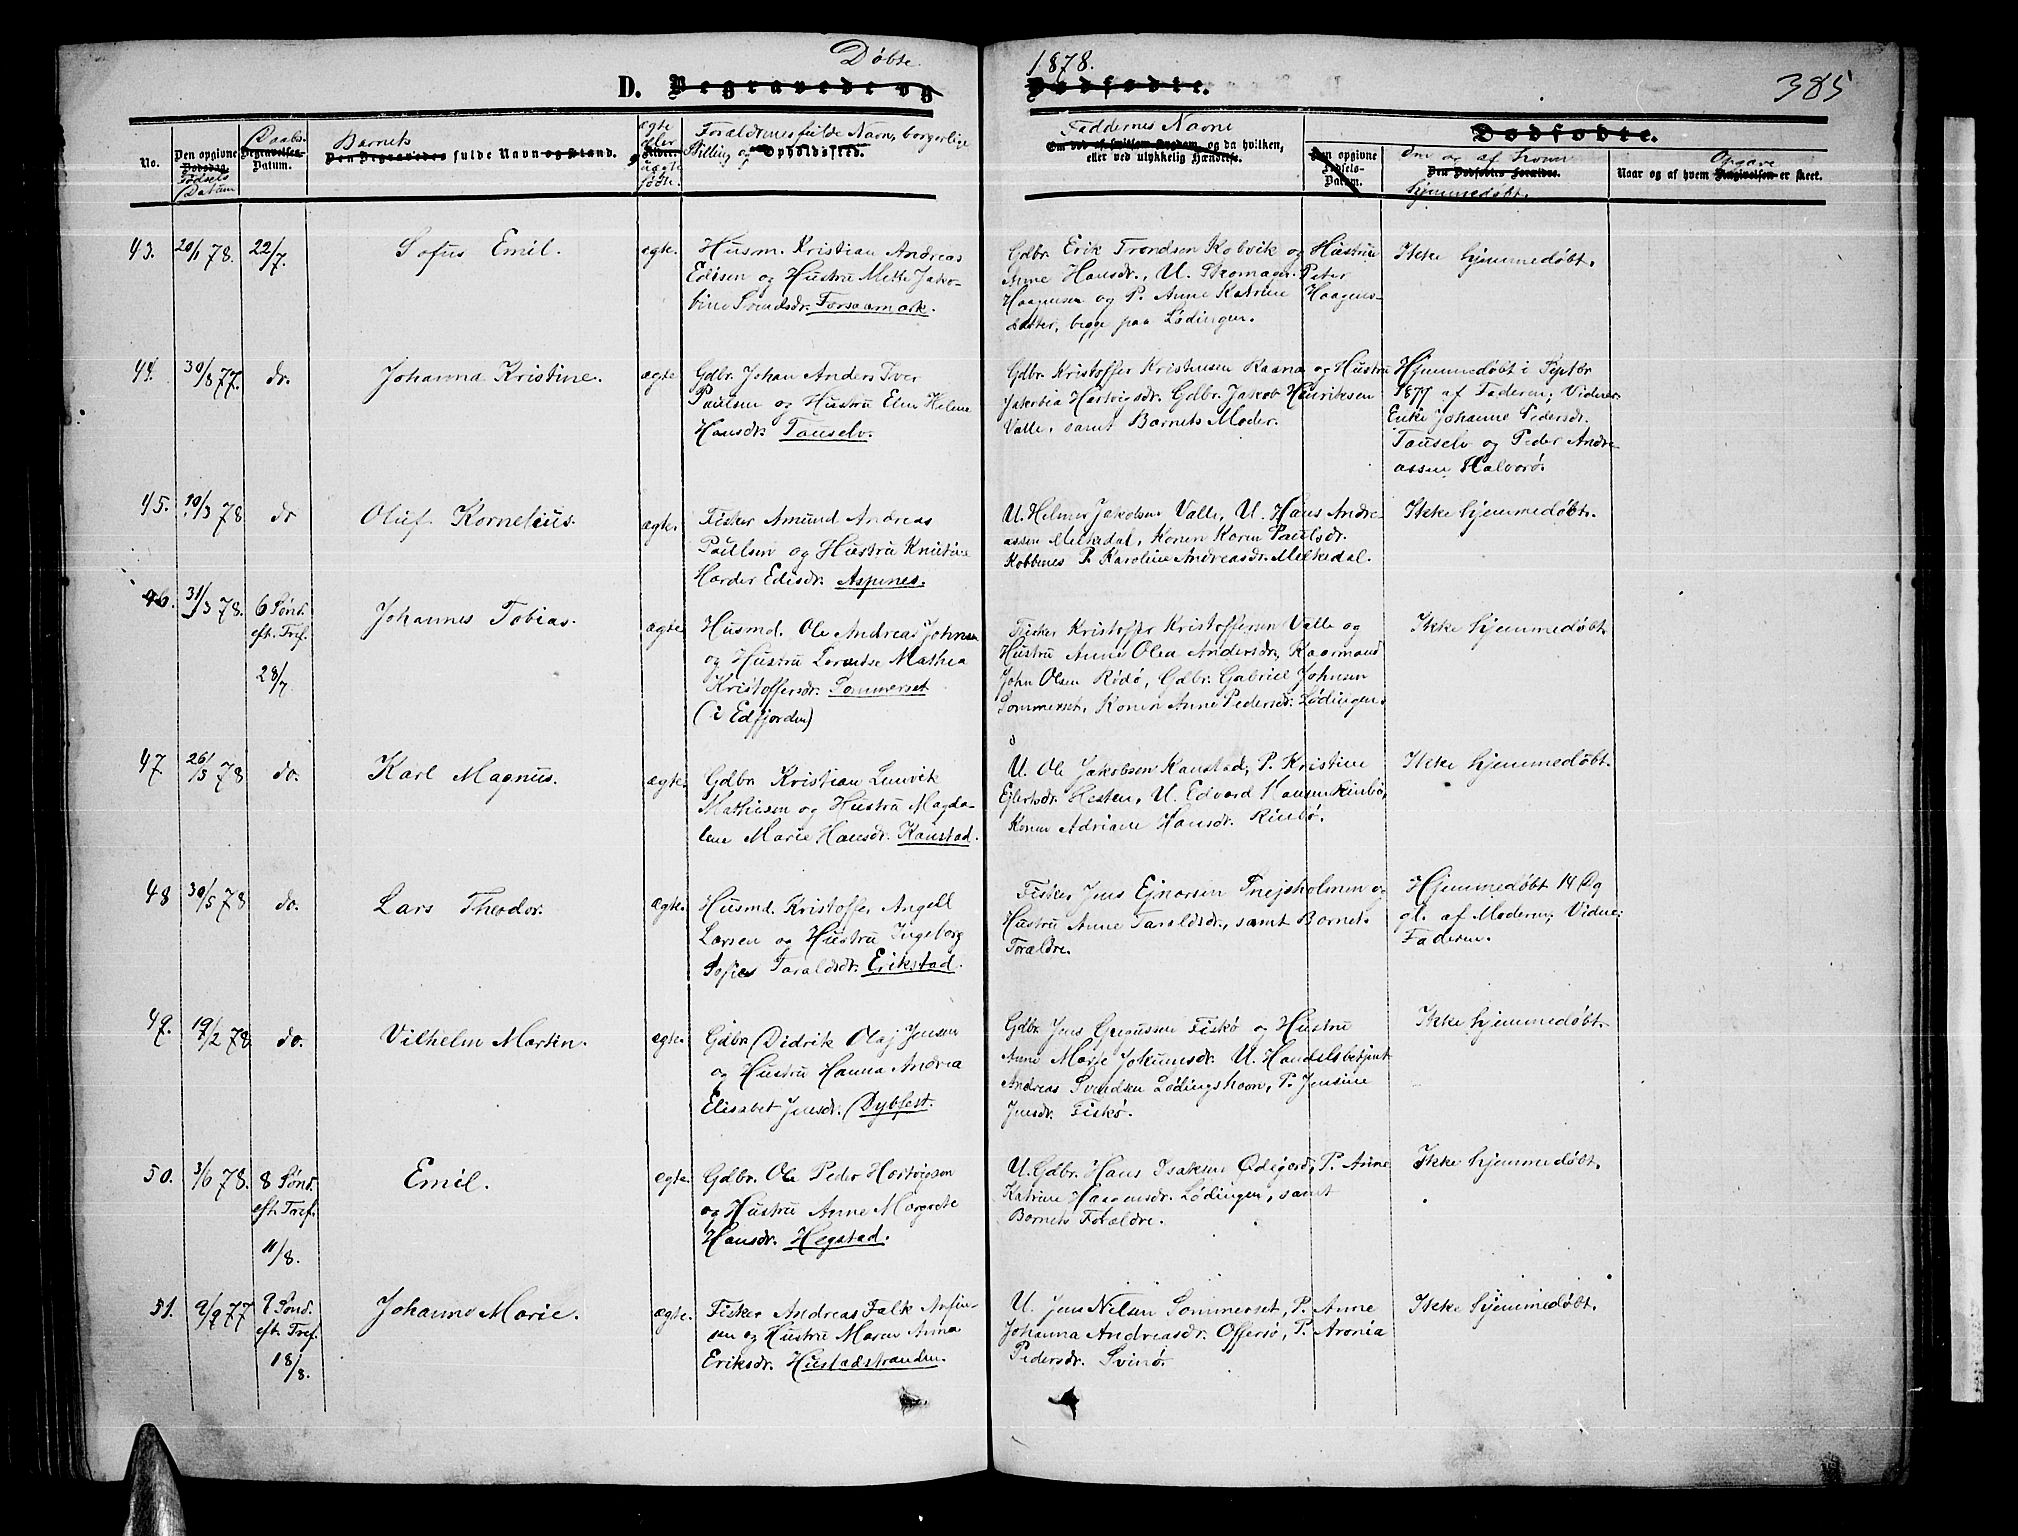 Døbte 1878.
D. Begravede og Dødfødte.
385
No.
Den opgivne Dødsdag Fødsels Datum
Daabs Begravelses-Datum.
Barnets
Den Begravedes fulde Navn og Stand.
ægte eller uægte født.
Forældrenes fulde Navn, borgerlige
Stilling og Opholdssted.
Faddernes Navne
Om død af smitsom Sygdom, og da hvilken,
eller ved ulykkelig Hændelse.
Dødfødte.
Den opgivne Fødsels-Datum.
Om og af hvem
Den Dødfødtes Forældre.
hjemmedøbt.
Opgave
Naar og af hvem Angivelsen er skeet.
43. 20/1 78. 22/7. Sofus Emil. ægte. Husm. Kristian Andreas
Edisen og Hustru Mette Jako-
bine Svendsdr. Forsaamark.
Gdbr. Erik Trondsen Kobvik og Hustru
Anne Hansdr., U. Skomager Peter
Haagensen og P. Anne Katrine Haagens-
datter, begge paa Lødingen.
Ikke hjemmedøbt.
44. 30/8 77. do. Johanna Kristine. ægte Gdbr. Johan Anders Iver
Paulsen og Hustru Elen Helene
Hansdr. Tauselv.
Gdbr. Kristoffer Kristensen Raana og Hustru
Jakobia Hartvigsdr. Gdbr. Jakob Henriksen
Valle, samt Barnets Moder.
Hjemmedøbt i Septbr
1877 af Faderen; Vidner
Enke Johanne Pedersdr.
Tauselv og Peder Andre-
assen Halvarø.
45. 10/3 78. do Oluf Kornelius. ægte. Fisker Amund Andreas
Paulsen og Hustru Knutine
Hærder Edisdr. Aspenes.
U. Helmer Jakobsen Valle, U. Hans Andre-
assen Melkedal, Konen Karen Paulsdr.
Kobbenes P. Karoline Andreasdr. Melkedal.
Ikke hjemmedøbt.
46. 31/3 78. 6 Sønd. eft. Tref. 28/7 Johannes Tobias. ægte Husmd. Ole Andreas Johnsen
og Hustru Berntse Mathea
Kristoffersdr. Sommerset
(i Edfjorden)
Fisker Kristoffer Kristoffersen Valle og
Hustru Anne Olea Andersdr, Kaarmand
John Olsen Rødø, Gdbr. Gabriel Johnsen
Sommerset, Konen Anne Pedersdr. Lødingen.
Ikke hjemmedøbt.
47. 26/3 78 do. Karl Magnus. ægte. Gdbr Kristian Lunvik
Mathiesen og Hustru Magda-
lene Marie Hansdr. Kanstad.
U. Ole Jakobsen Kanstad, P. Kristine
Ejlertsdr. Hesten, U. Edvard Hansen Rinbø,
Konen Adriane Hansdr. Rinbø.
Ikke hjemmedøbt.
48 30/5 78 do. Lars Theodor. ægte. Husmd. Kristoffer Angell
Larsen og Hustru Ingeborg
Sofie Taraldsdr. Erikstad.
Fisker Jens Ejnarsen Snejsholmen og
Hustru Anne Taraldsdr., samt Barnets
Forældre.
Hjemmedøbt 14 Dg
gl. af Moderen; Vidne:
Faderen.
49. 19/2 78 do. Vilhelm Martin. ægte. Gdbr Didrik Olaj Jensen
og Hustru Hanna Andrea
Elisabet Jensdr. Dybfest.
Gdbr Jens Gregussen Fiskø og Hustru
Anne Marie Jokumsdr. U. Handelsbetjent
Andreas Svendsen Lødingshavn, P. Jensine
Jensdr. Fiskø.
Ikke hjemmedøbt.
50. 3/6 78. 8 Sønd. eft. Tref. 11/8. Emil. ægte. Gdbr. Ole Peder Hartvigsen
og Hustru Anne Margrete
Hansdr. Hegstad.
U. Gdbr. Hans Isaksen Ødegord, P. Anne
Katrine Haagensdr. Lødingen, samt
Barnets Forældre.
Ikke hjemmedøbt.
51. 9/9 77 9 Sønd. eft. Tref. 18/8. Johanne Marie. ægte. Fisker Andreas Falk Arfin-
sen og Hustru Maren Anna
Eriksdr. Hustadstranden.
U. Jens Nilsen Sommerset, P. Anne
Johanna Andreasdr. Offersø, P. Aronia
Pedersdr. Svinør.
Ikke hjemmedøbt.